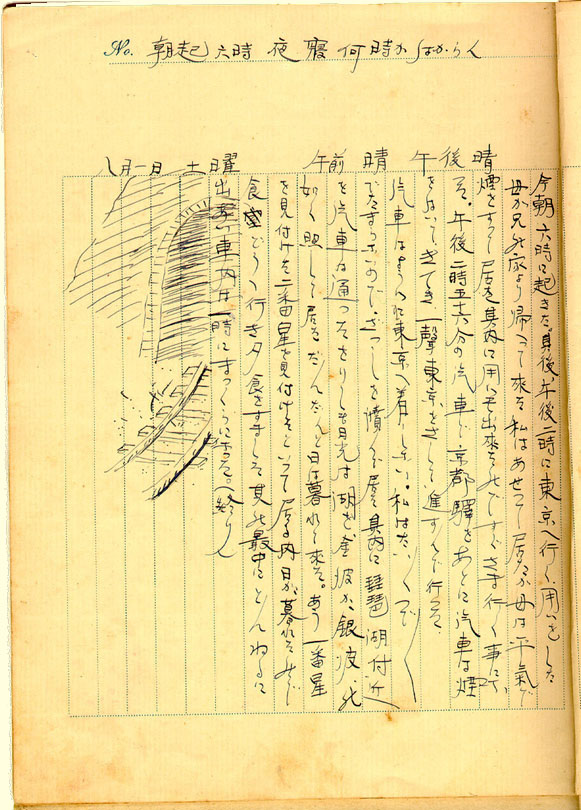 No. 朝起六時 夜寝何時かわからん
八月一日 土曜 午前 晴 午後 晴
今朝六時に起きた。其後、午後二時に東京へ行く用いをした
母が兄の家より帰って来る 私はあせって居るが母は平氣で
煙をすって居る其内に用いも出来たのですぐさま行く事にて、
そ。午後二時五十六分の汽車で京都驛をあとに汽車は煙
をはいて、きてき一聲東京をさして進すんで行った。
汽車はまうへに東京へ着りしない。私はたいくつで
でたまらないので、ざっしを讀んで居る其内に琵琶湖付近
を汽車は通った 月光は湖を 銀波の
如く照して居る だんだんと日は暮れて来る。あう一番星
を見付けた二番星を見付けたといって居る内日が暮れたので
食堂どうへ行き夕食をすました其の最中にとんねるに
出 車内は一時にまっくらになる。(終り)